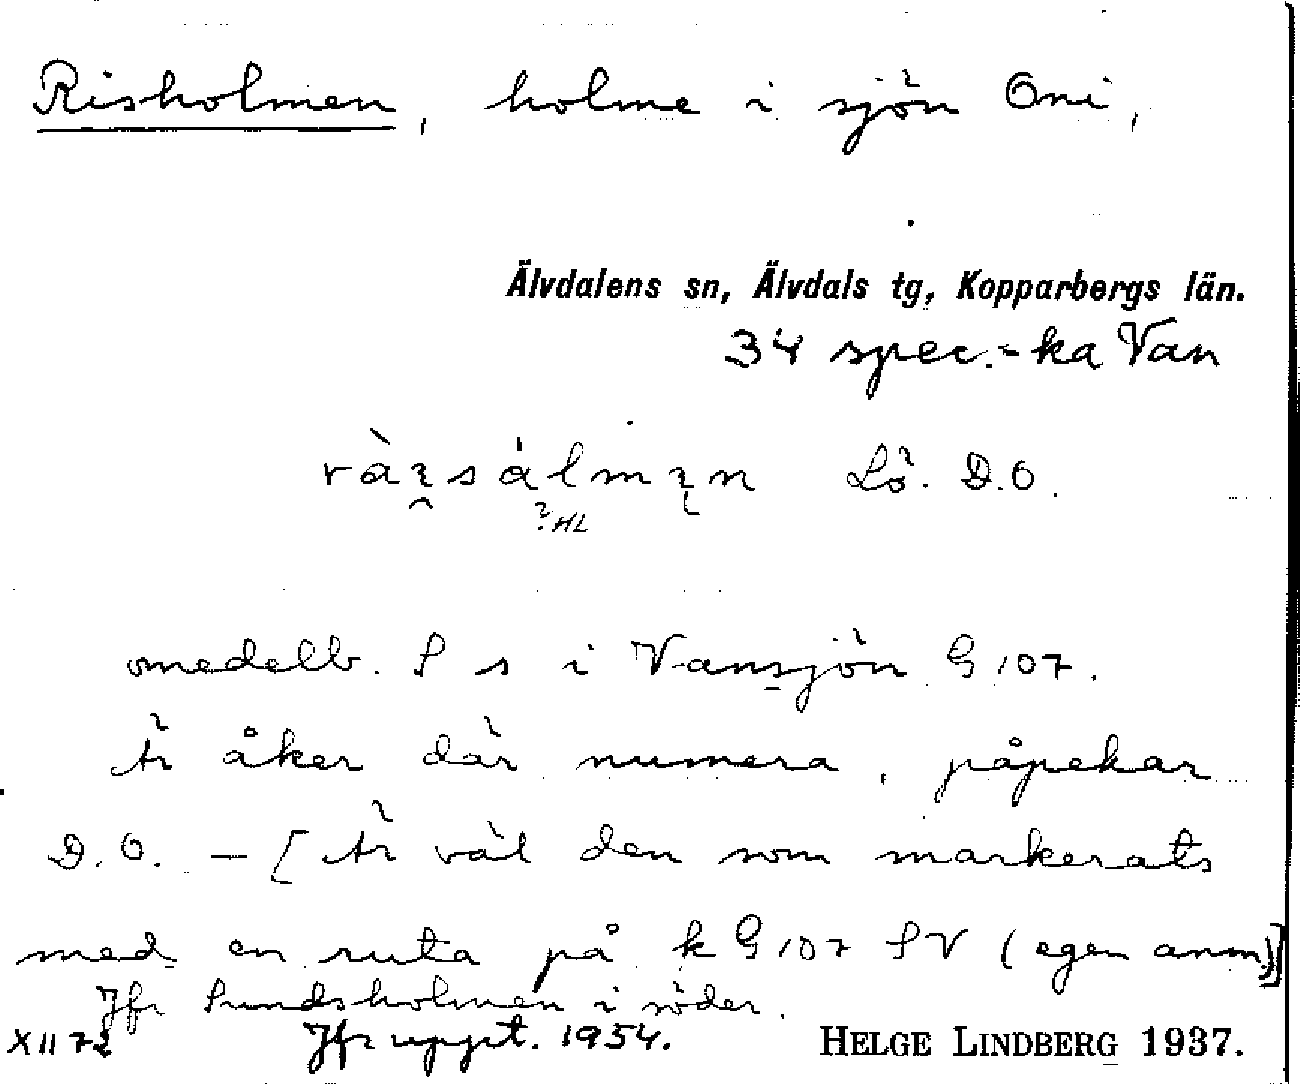 Risholmen, holme i sjön Oni,
Älvdalens sn, Älvdals tg, Kopparbergs län.
34 spec.-ka Van
Lö. D.O.
?HL
omedelb. S s i Vansjön G 107.
Är åker där numera, påpekar
D.O. – [Är väl den som markerats
med en ruta på k G 107 SV (egen anm)]
Jfr Sundsholmen i söder.
XII 72 Jfr uppt. 1954. HELGE LINDBERG 1937.